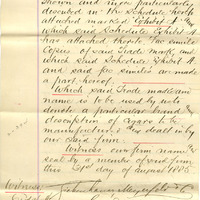 shown and more particularly
described in the Schedule hereto
attached marked Exhibit A
which said Schedule Exhibit A
has attached thereto Fac similie
Copies of said Trade Mark, and
which said Schedule Exhibit A
and said fac similies are made
a part hereof.
Which said Trade mark and
name is to be used by us to
denote a particular brand or
description of cigars to be
manufactured and dealt in by
our said firm
Witness our firm name
seal by a member of said firm
this day of August 1885
Witness